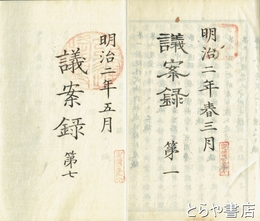 明治二年春三月
議案録
第一
明治二年五月
議案録
第七
とらや書店